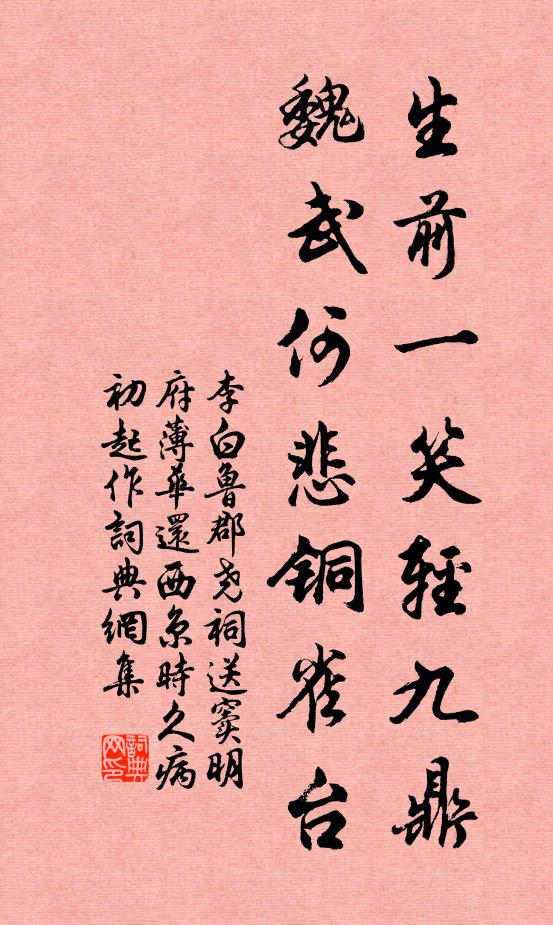 生前一笑輕九鼎
魏武何悲铜雀台
李白魯郡尧祠送窦明
府薄華還西京時久病
初起作詞典網集
詞典
网印